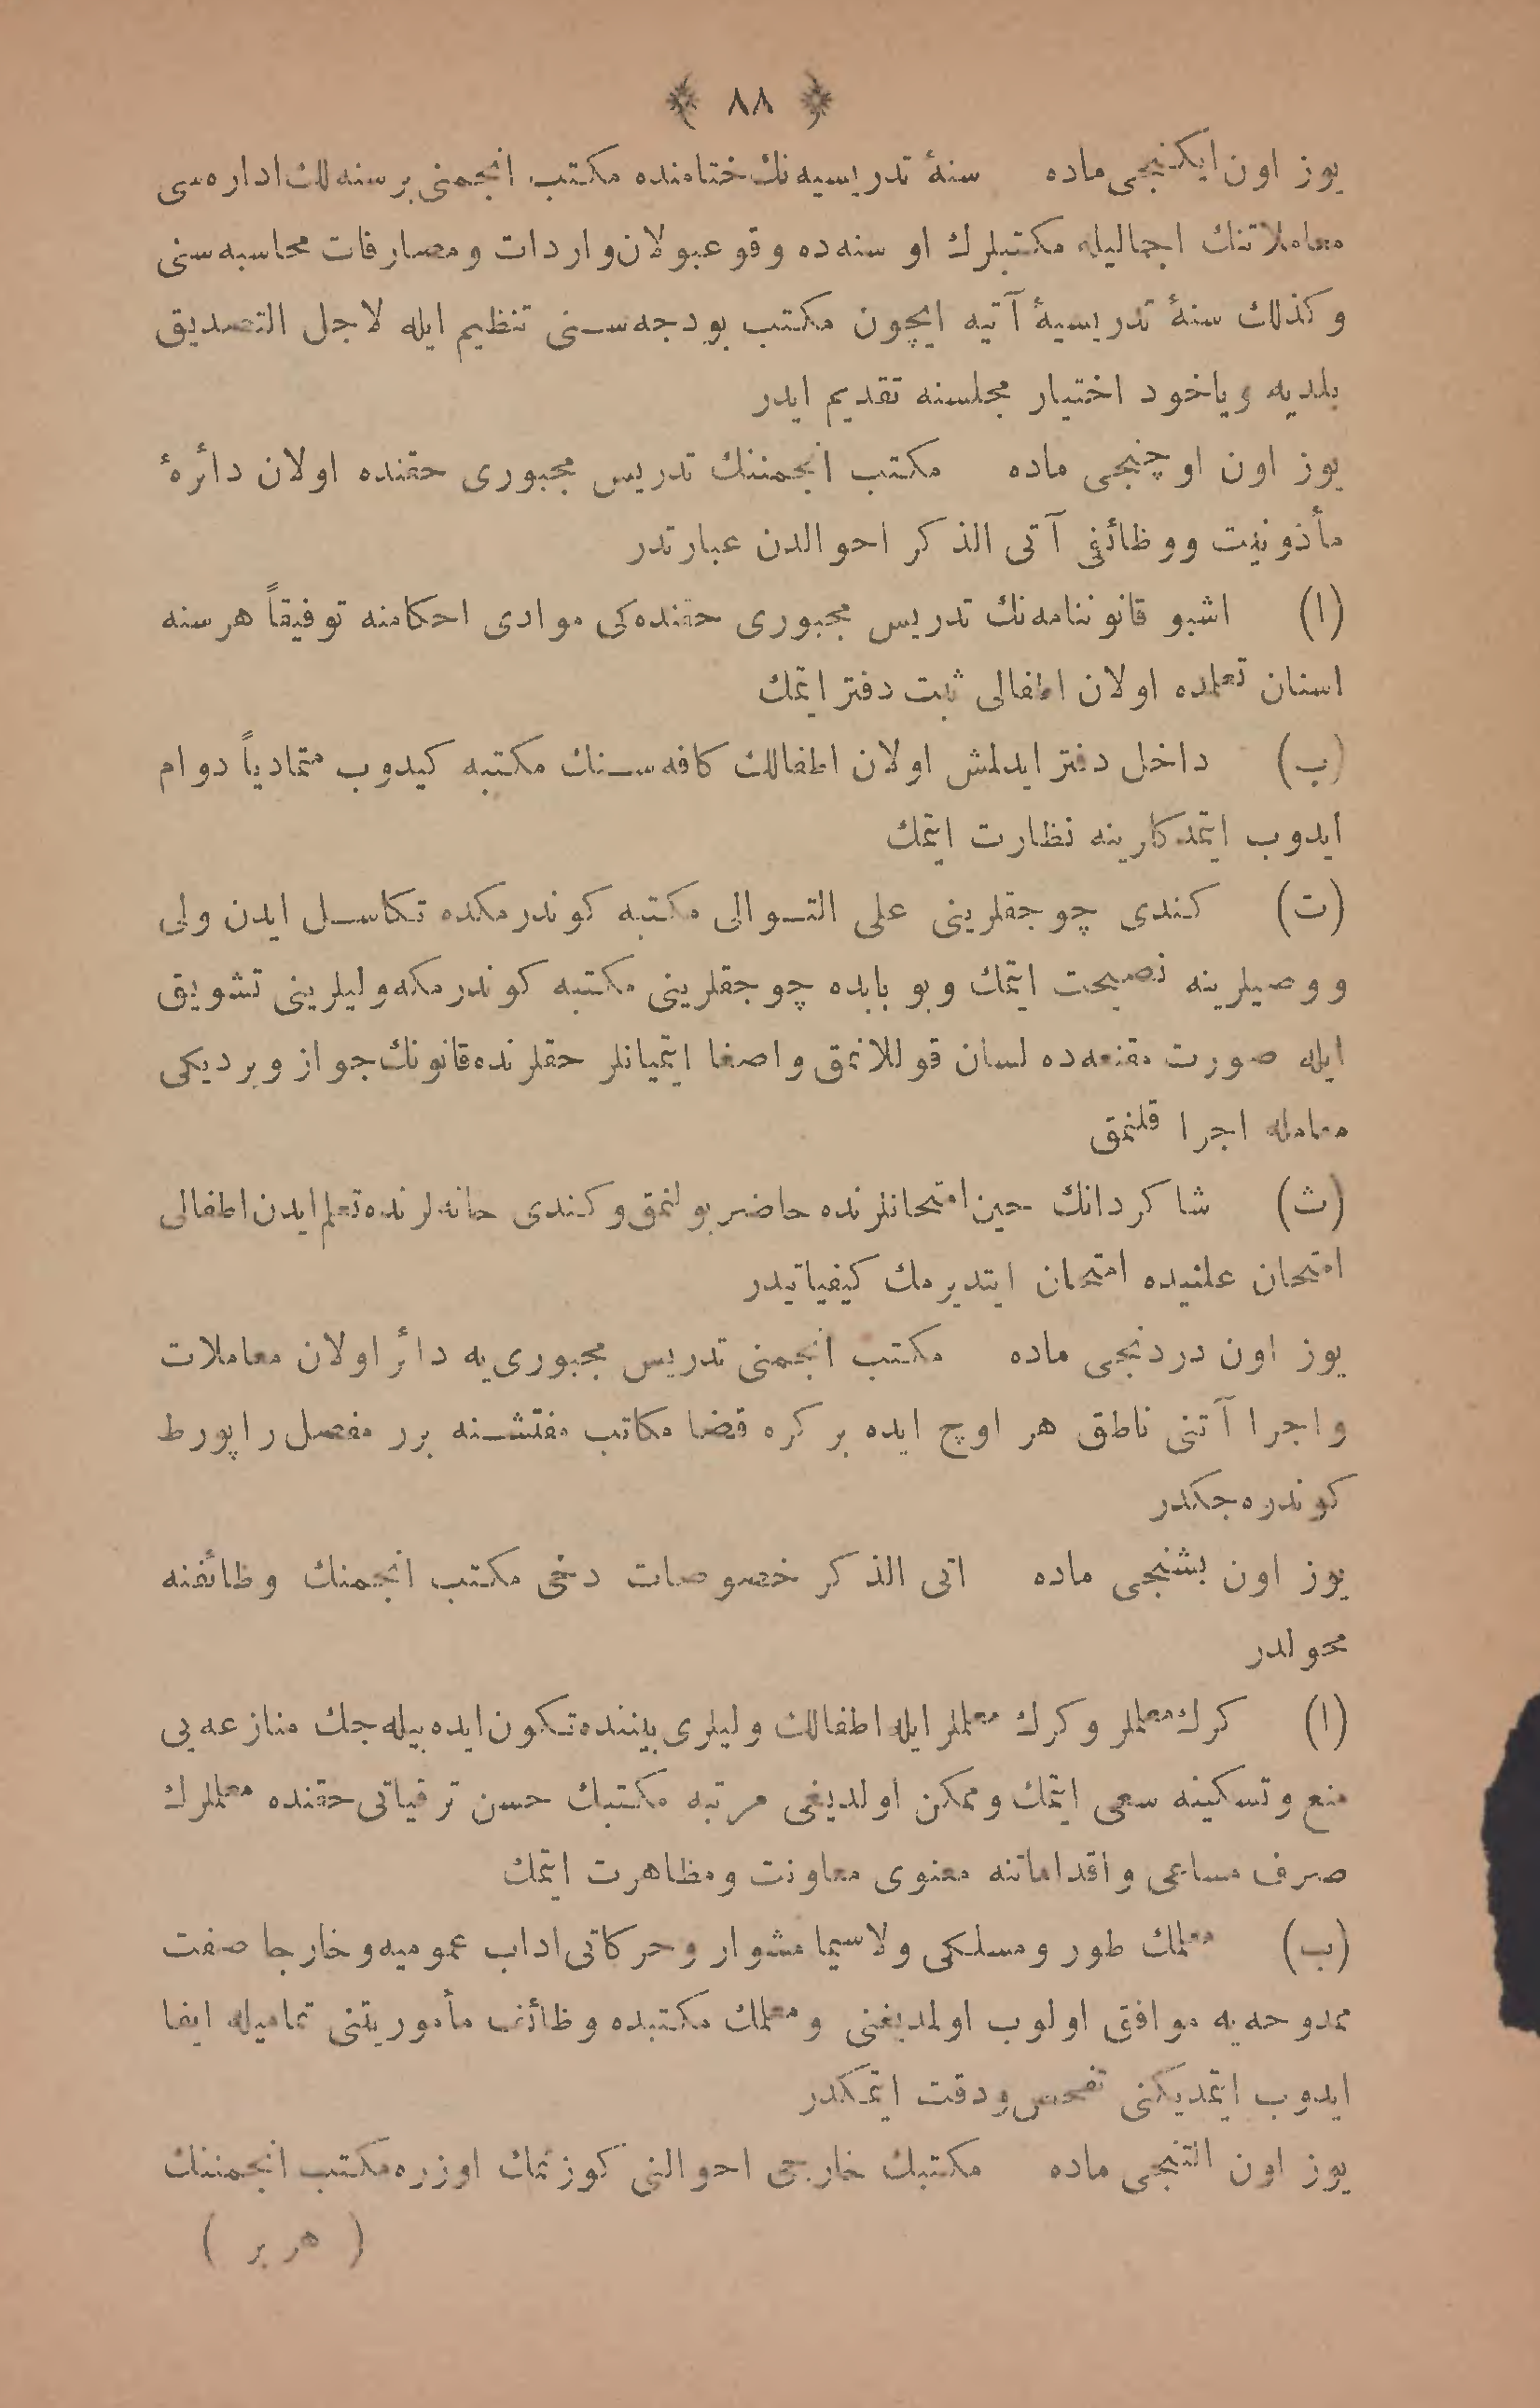 ٨٨
یوز اون ایكنجی ماده سنهٔ تدریسیه‌نك ختامنده مكتب انجمنی بر سنه‌لك اداره‌سی
معاملاتنك اجمالیله مكتبلرك او سنه‌ده وقوعبولان واردات ومصارفات محاسبه‌سنی
وكذلك سنهٔ تدریسیهٔ آتیه ایچون مكتب بودجه‌سنی تنظیم ایله لاجل التصدیق
بلدیه ویاخود اختیار مجلسنه تقدیم ایدر
یوز اون اوچنجی ماده مكتب انجمننك تدریس مجبوری حقنده اولان دائرهٔ
مأذونیت ووظائفی آتی الذكر احوالدن عبارتدر
(ا) اشبو قانوننامه‌نك تدریس مجبوری حقنده‌كی موادی احكامنه توفیقاً هر سنه
اسنان تعلمده اولان اطفالی ثبت دفتر ایتمك
(ب) داخل دفتر ایدلمش اولان اطفالك كافه‌سنك مكتبه كیدوب متمادیاً دوام
ایدوب ایتمدكلرینه نظارت ایتمك
(ت) كندی چوجقلرینی علی التوالی مكتبه كوندرمكده تكاسل ایدن ولی
ووصیلرینه نصیحت ایتمك وبو بابده چوجقلرینی مكتبه كوندرمكه ولیلرینی تشویق
ایله صورت مقنعه‌ده لسان قوللانمق واصغا ایتمیانلر حقلرنده قانونك جواز ویردیكی
معامله اجرا قلنمق
(ث) شاكردانك حین امتحانلرنده حاضر بولنمق وكندی خانه‌لرنده تعلم ایدن اطفالی
امتحان علنیده امتحان ایتدیرمك كیفیاتیدر
یوز اون دردنجی ماده مكتب انجمنی تدریس مجبوری‌یه دائر اولان معاملات
واجرا آتنی ناطق هر اوچ ایده بر كره قضا مكاتب مفتشنه برر مفصل راپورط
كوندره‌جكدر
یوز اون بشنجی ماده اتی الذكر خصوصات دخی مكتب انجمنك وظائفنه
محولدر
(ا) كرك معلملر وكرك معلملر ایله اطفالك ولیلری بیننده تكون ایده بیله‌جك منازعه‌یی
منع وتسكینه سعی ایتمك وممكن اولدیغی مرتبه مكتبك حسن ترقیاتی حقنده معلملرك
صرف مساعی واقداماتنه معنوی معاونت ومظاهرت ایتمك
(ب) معلمك طور ومسلكی ولاسیما مشوار وحركاتی اداب عمومیه وخارجا صفت
ممدوحه‌یه موافق اولوب اولمدیغنی ومعلمك مكتبده وظائف مأموریتنی تمامیله ایفا
ایدوب ایتمدیكنی تفحص ودقت ایتمكدر
یوز اون التنجی ماده مكتبك خارجی احوالنی كوزتمك اوزره مكتب انجمننك
( هر بر )